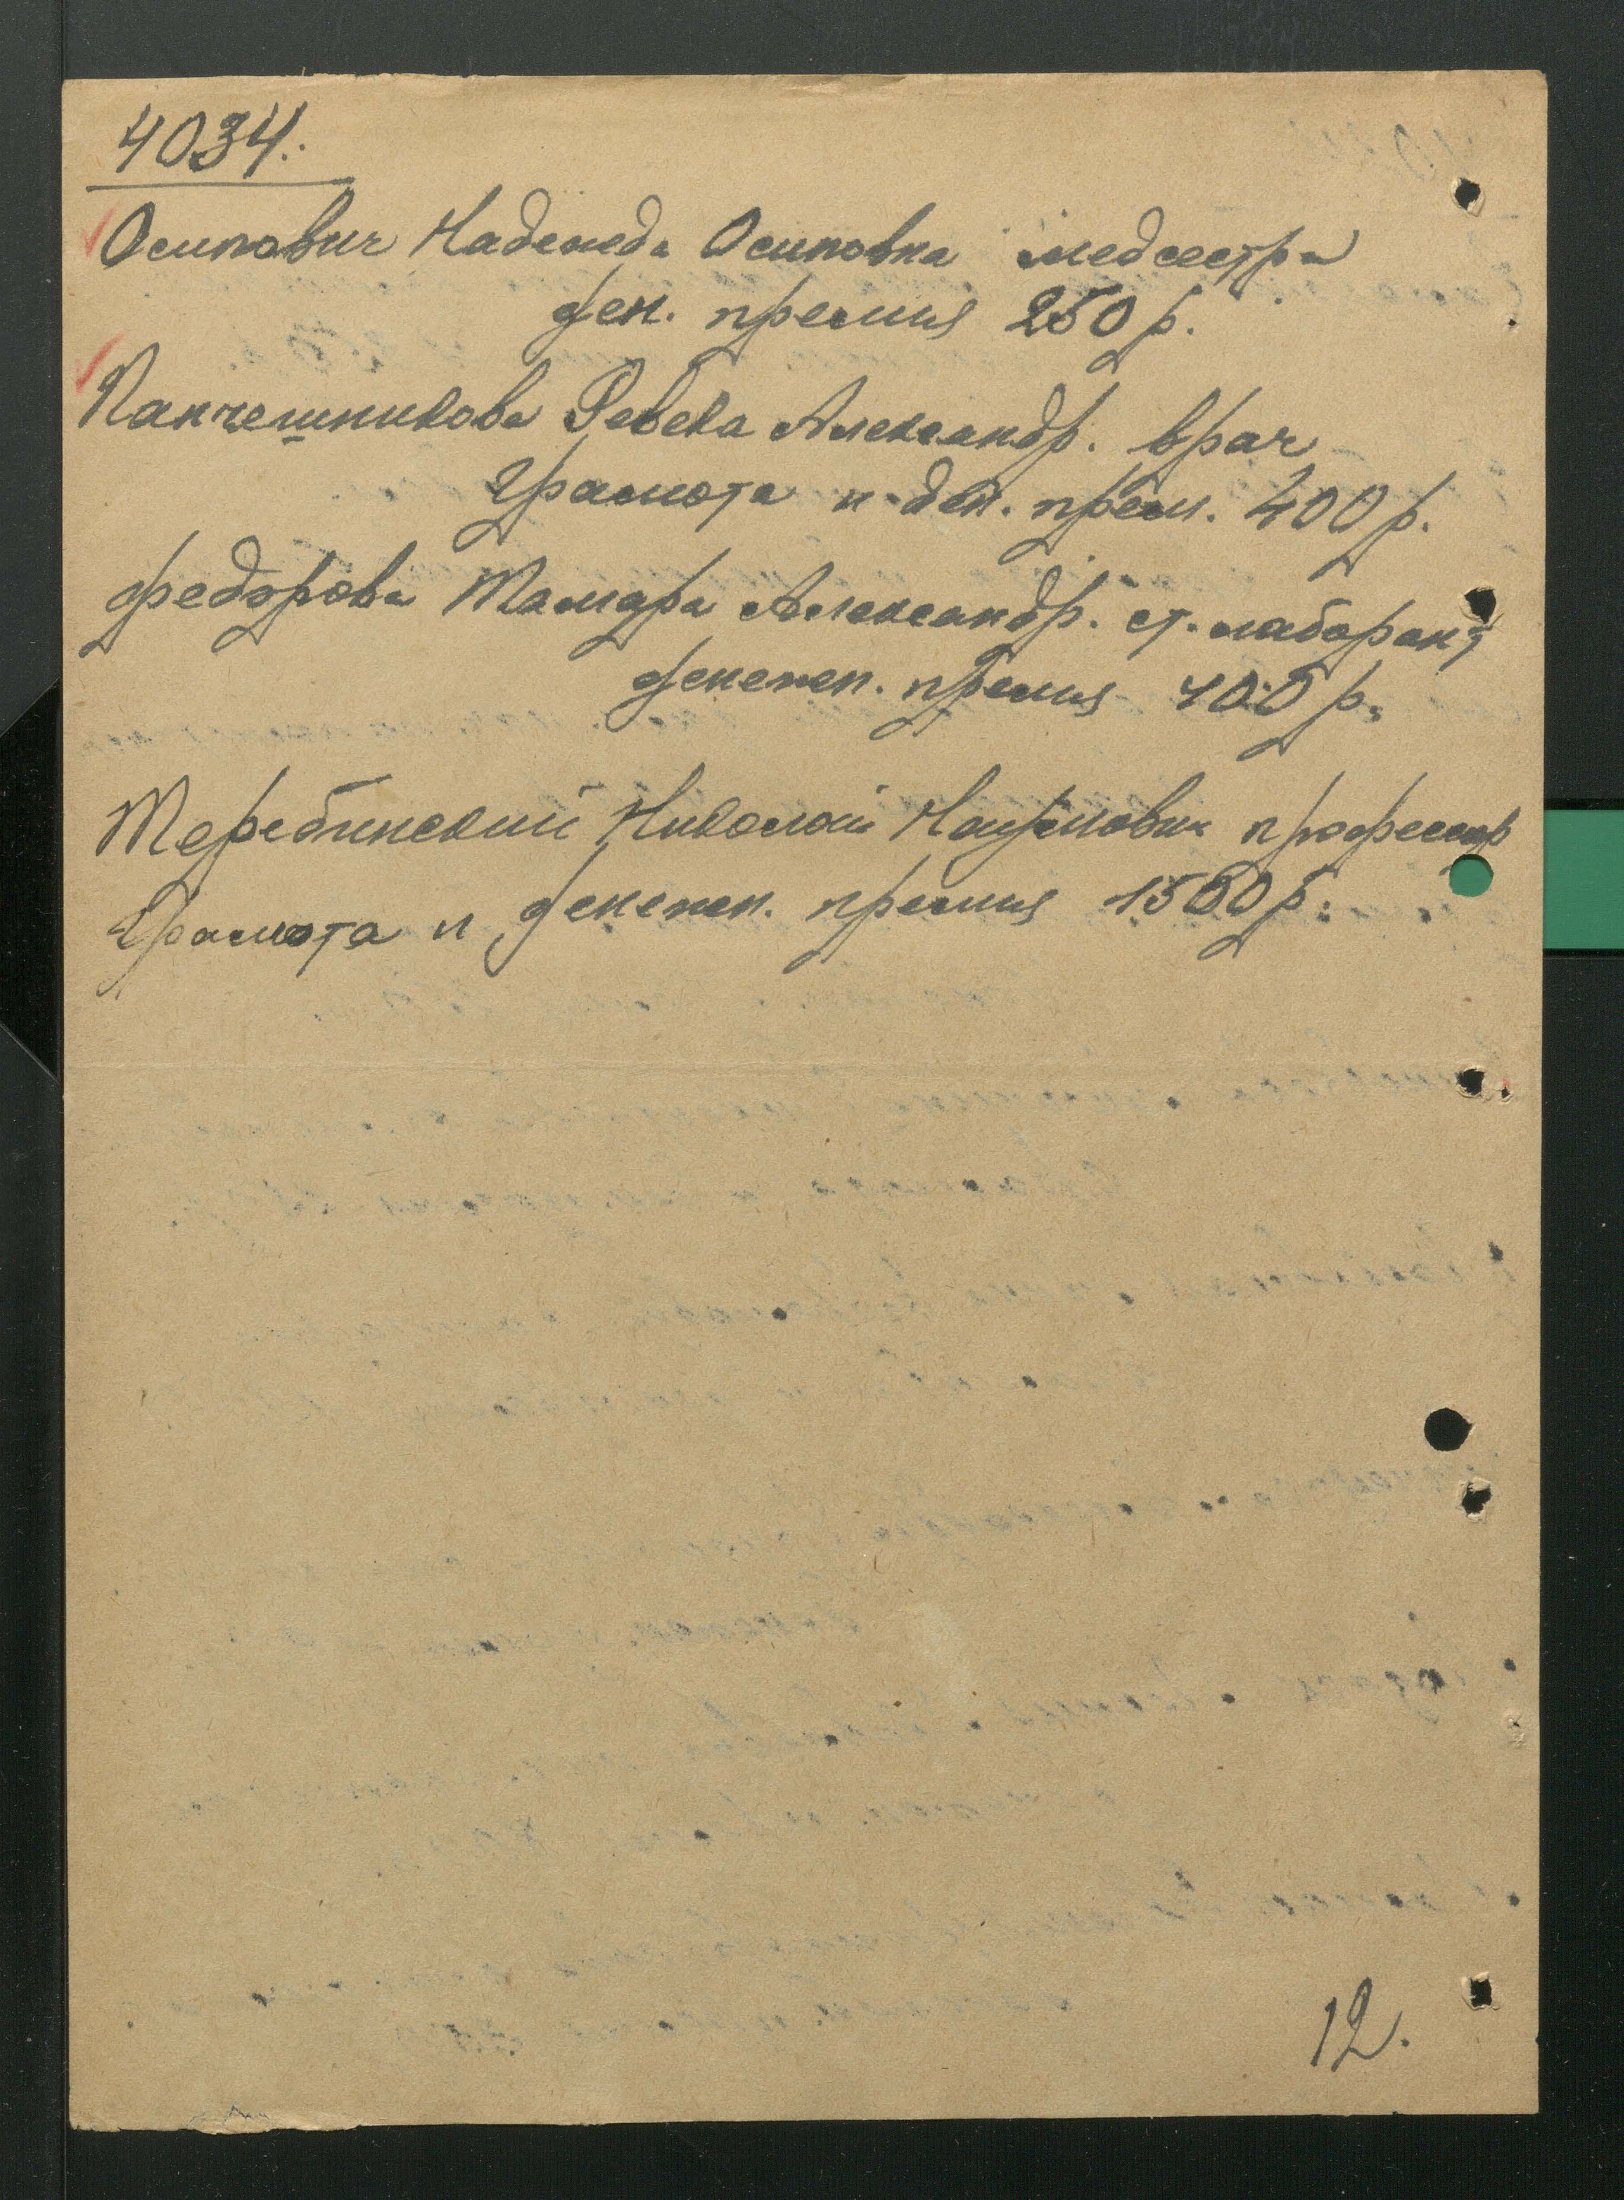 4034.
Осипович Надежда Осиповна медсестра
ден. премия 250 р.
Канчешникова Ревека Александр. врач
Грамота и ден. прем. 400 р.
Федорова Тамара Александр. ст. лаборант
денежн. премия 400 р.
Теребинский Николай Наумович профессор
Грамота и денежн. премия 1500 р.
12.